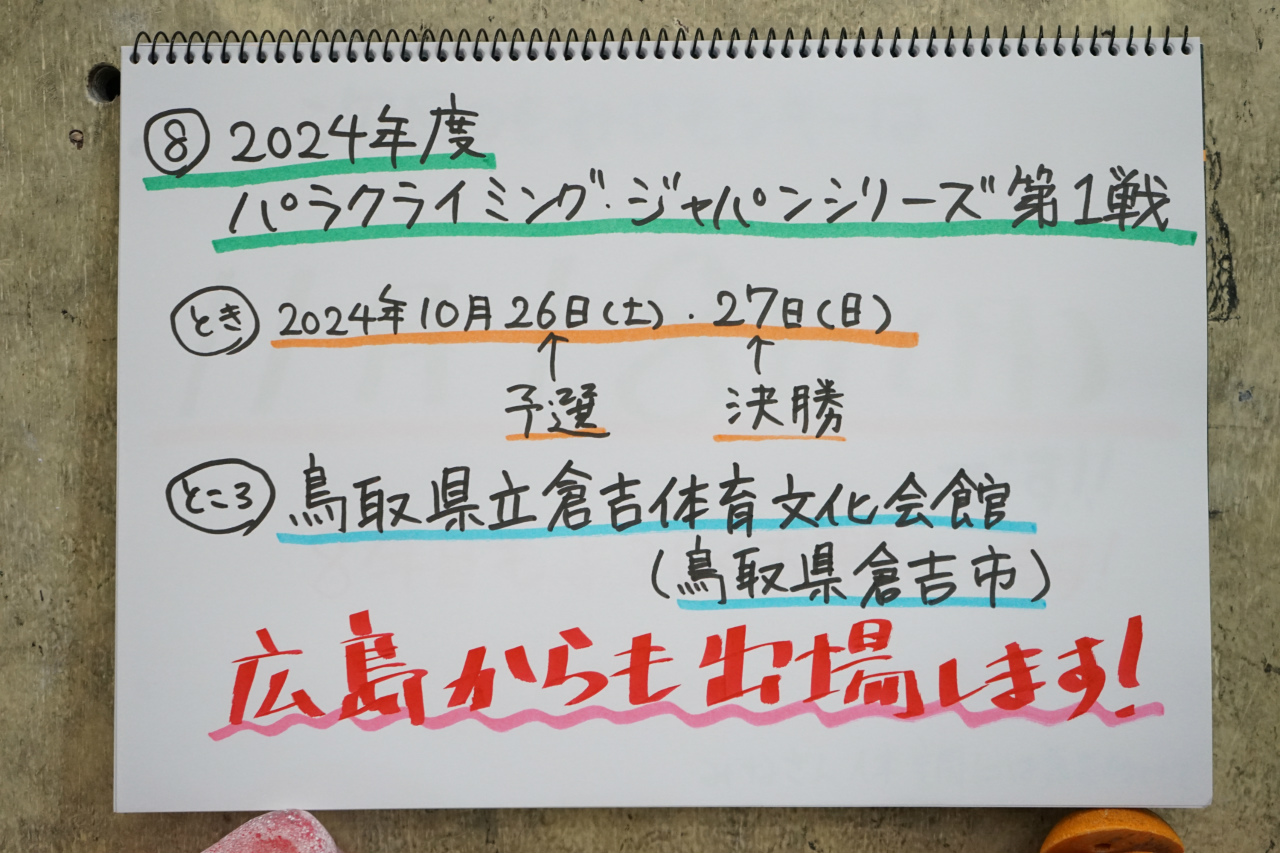 ⑧ 2024年度
パラクライミング・ジャパンシリーズ第1戦
とき 2024年10月26日(土)・27日(日)
↑ ↑
予選 決勝
ところ 鳥取県立倉吉体育文化会館
(鳥取県倉吉市)
広島からも出場します!